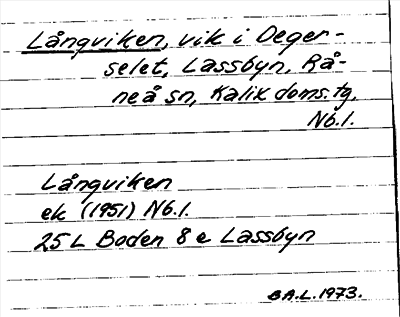 Långviken, vik i Deger-
selet, Lassbyn, Rå-
neå sn, Kalix doms. tg,
Nb.l.
Långviken
ek (1951) Nb.l.
25 L Boden 8 e Lassbyn
B A.L. 1973.